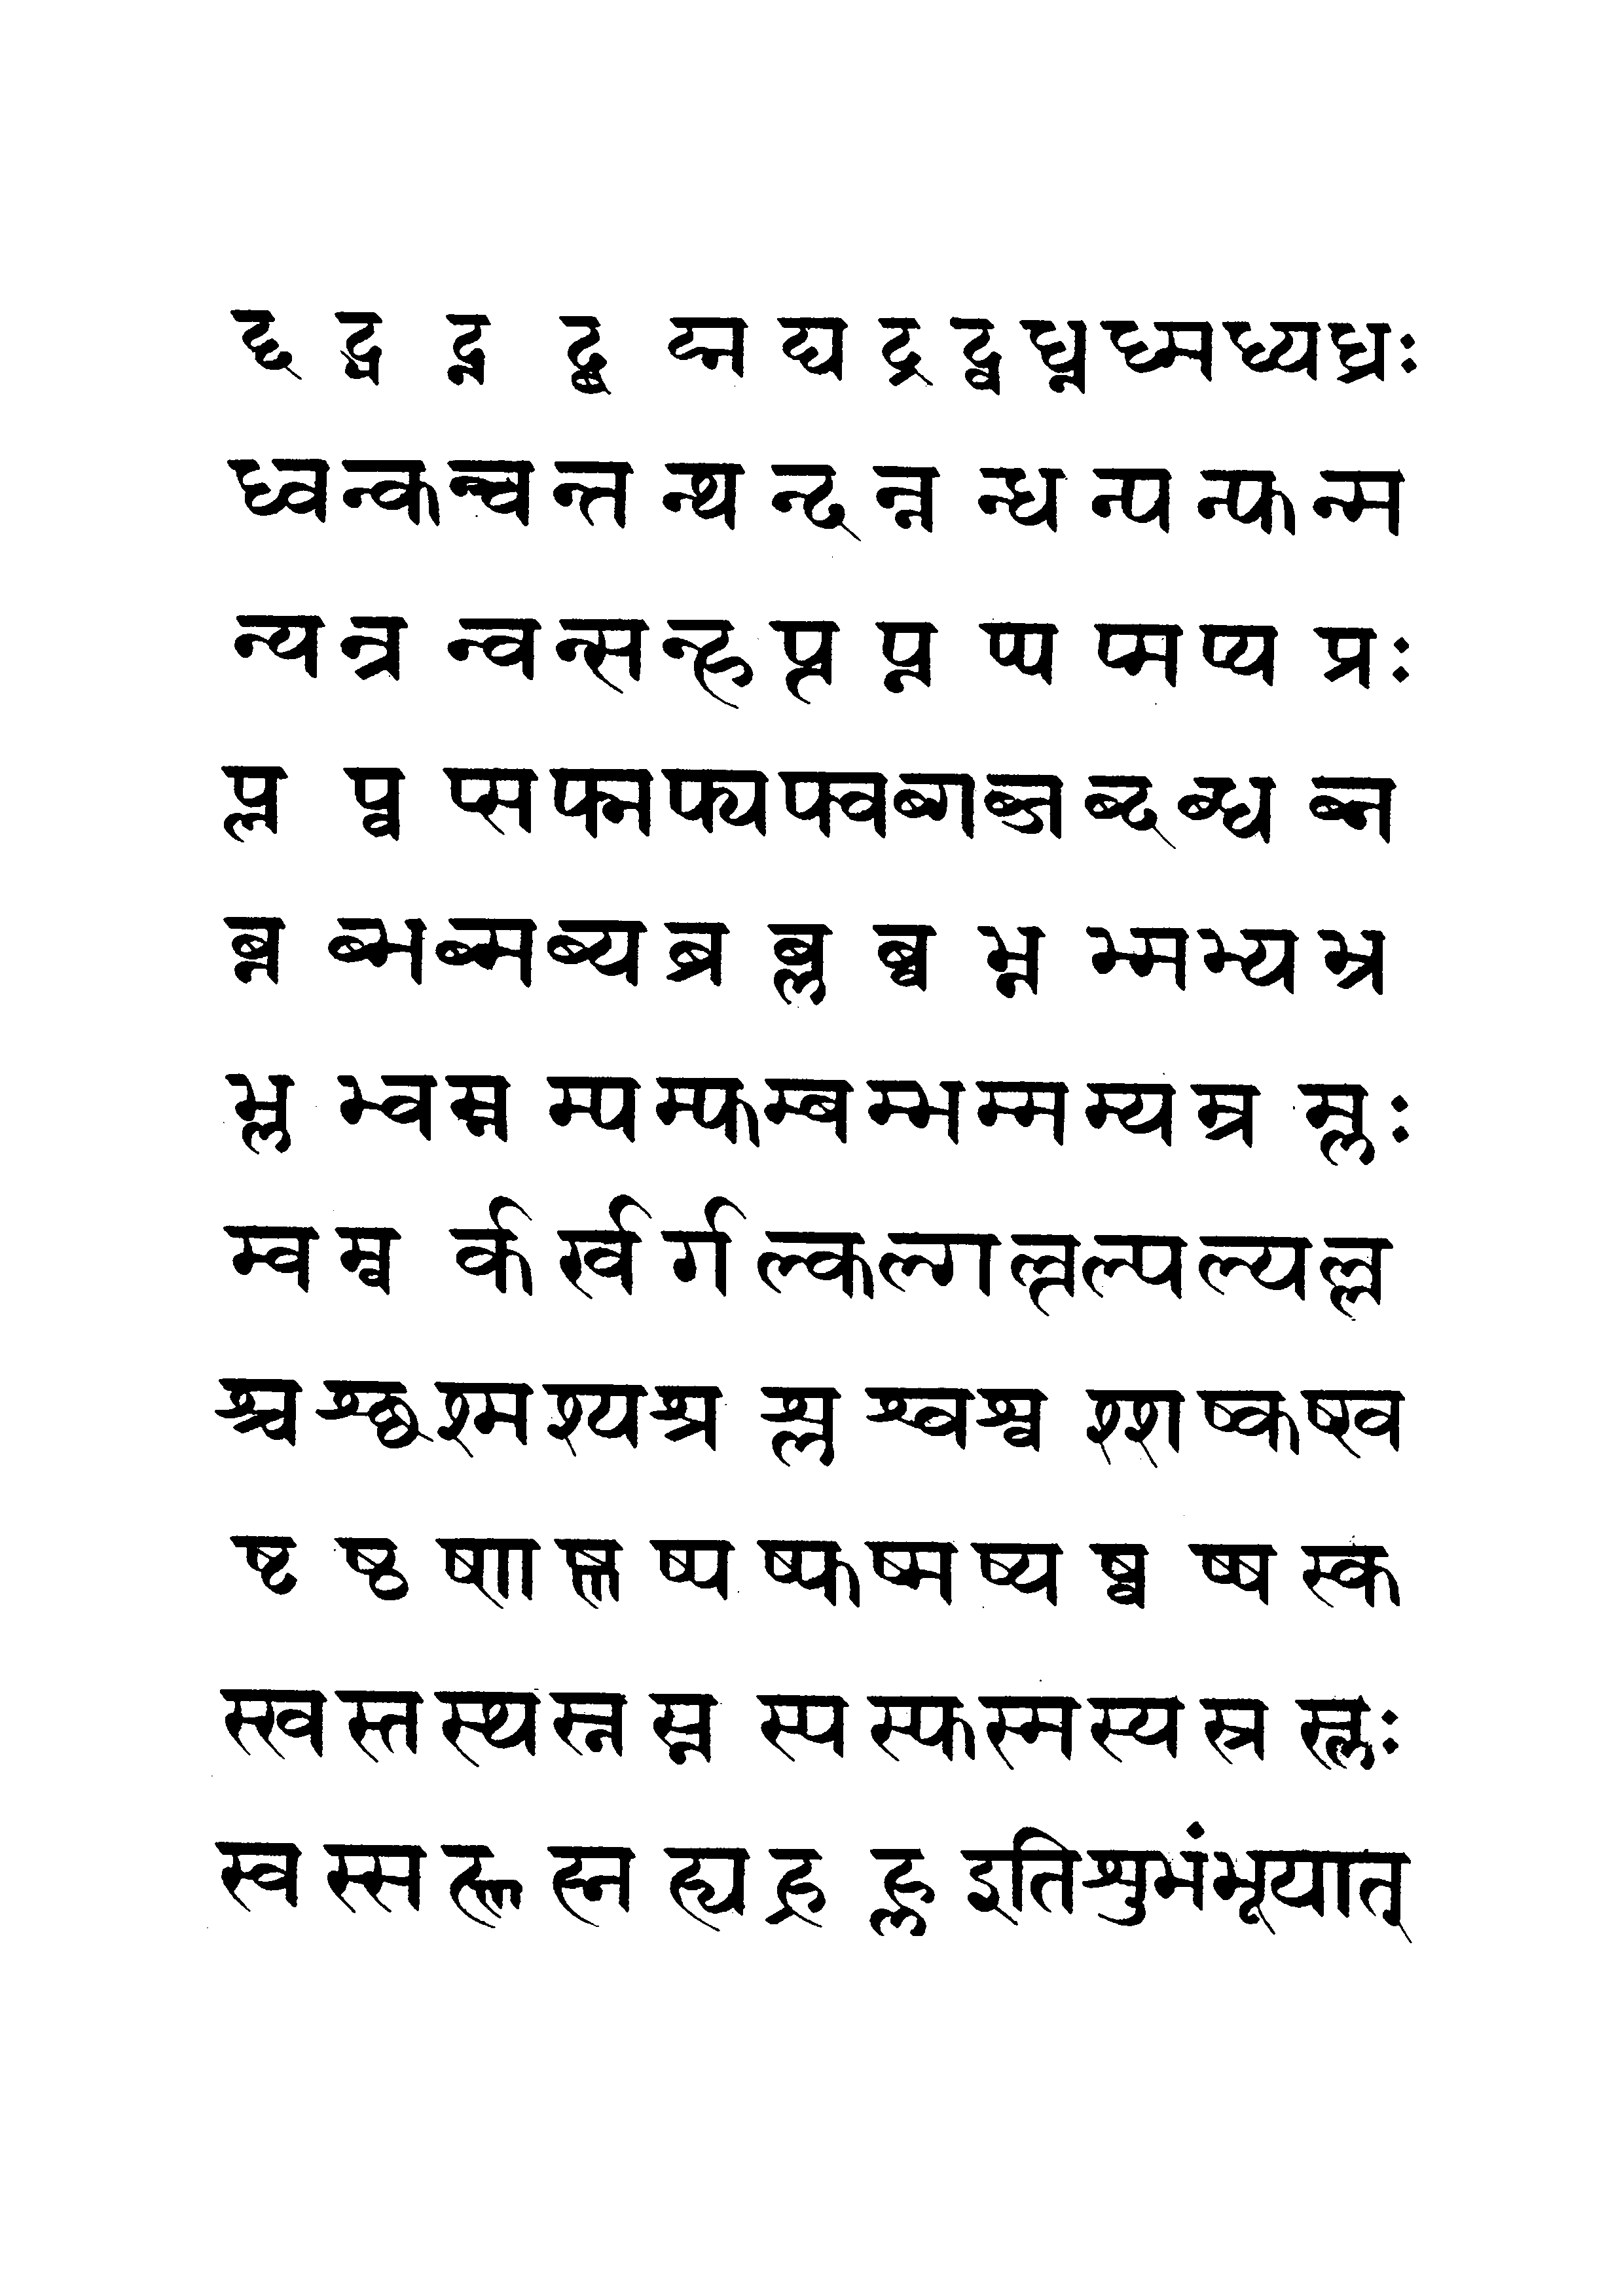 द्द द्व द्न द्ब द्म द्य द्र द्व ध्न ध्म ध्य ध्र :
ध्व न्क न्च न्त न्थ न्द न्न न्ध न्प न्फ न्म
न्य न्र न्व न्स न्ह प्त प्न प्प प्म प्य प्र :
प्ल प्व प्स फ्न फ्य फ्व ब्ग ब्ज ब्द ब्ध ब्न
ब्न ब्भ ब्म ब्य ब्र ब्ल ब्व भ्न भ्म भ्य भ्र
भ्ल भ्व म्न म्प म्फ म्ब म्भ म्म म्य म्र म्ल :
म्व म्व र्क र्ख र्ग ल्क ल्ग ल्त ल्प ल्य ल्ल
श्च श्छ श्म श्य श्र श्ल श्व श्व श्श ष्क ष्ख
ष्ट ष्ठ ष्ण ष्ण ष्प ष्फ ष्म ष्य ष्व ष्ष स्क
स्ख स्त स्थ स्न स्न स्प स्फ स्म स्य स्र स्ल :
स्व स्स ह्ण ह्न ह्य ह्र ह्ल इति शुभं भूयात्